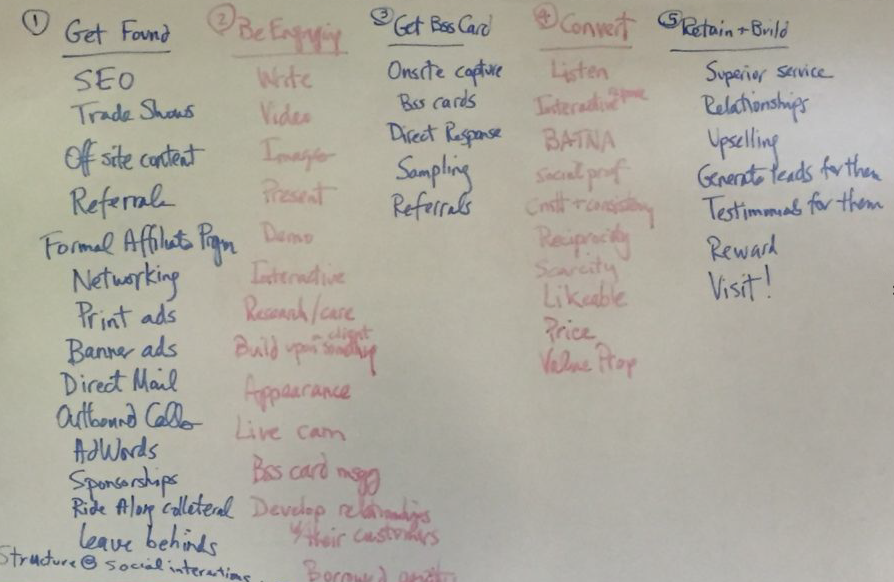 ① Get Found
SEO
Trade Shows
Off site content
Referrals
Formal Affiliate Prgm
Networking
Print ads
Banner ads
Direct Mail
Outbound Calls
AdWords
Sponsorships
Ride Along colleteral
leave behinds
Structure @ social interactions
② Be Engaging
Write
Video
Images
Present
Demo
Interactive
Research/care
Build upon something - client
Appearance
Live cam
Bss card msgg
Develop relationships
w/ their customers
Borrowed
③ Get Bss Card
Onsite capture
Bss cards
Direct Response
Sampling
Referrals
④ Convert
Listen
Interactive
BATNA
Social prof
Cmtt + consistency
Reciprocity
Scarcity
Likeable
Price
Value Prop
⑤ Retain + Build
Superior service
Relationships
Upselling
Generate leads for them
Testimonials for them
Reward
Visit!